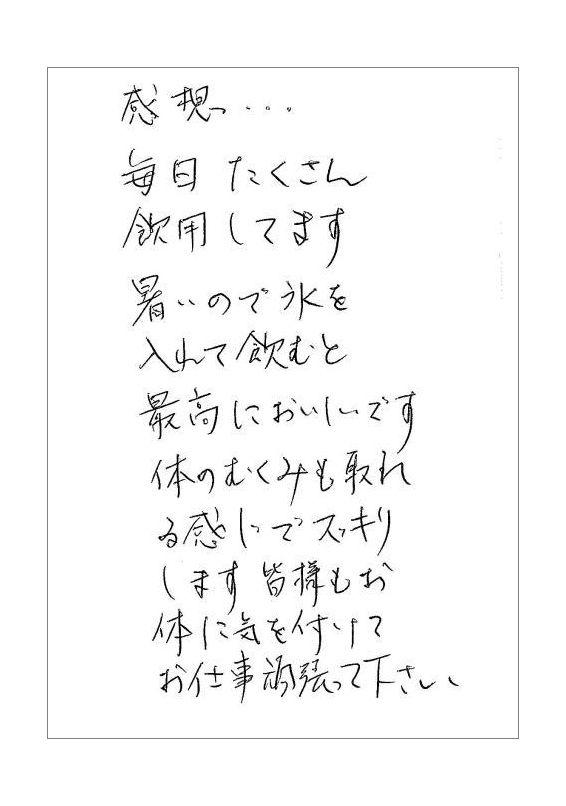 感想...
毎日たくさん
飲用してます
暑いので氷を
入れて飲むと
最高においしいです
体のむくみも取れ
る感じでスッキリ
します 皆様もお
体に気を付けて
お仕事頑張って下さい、